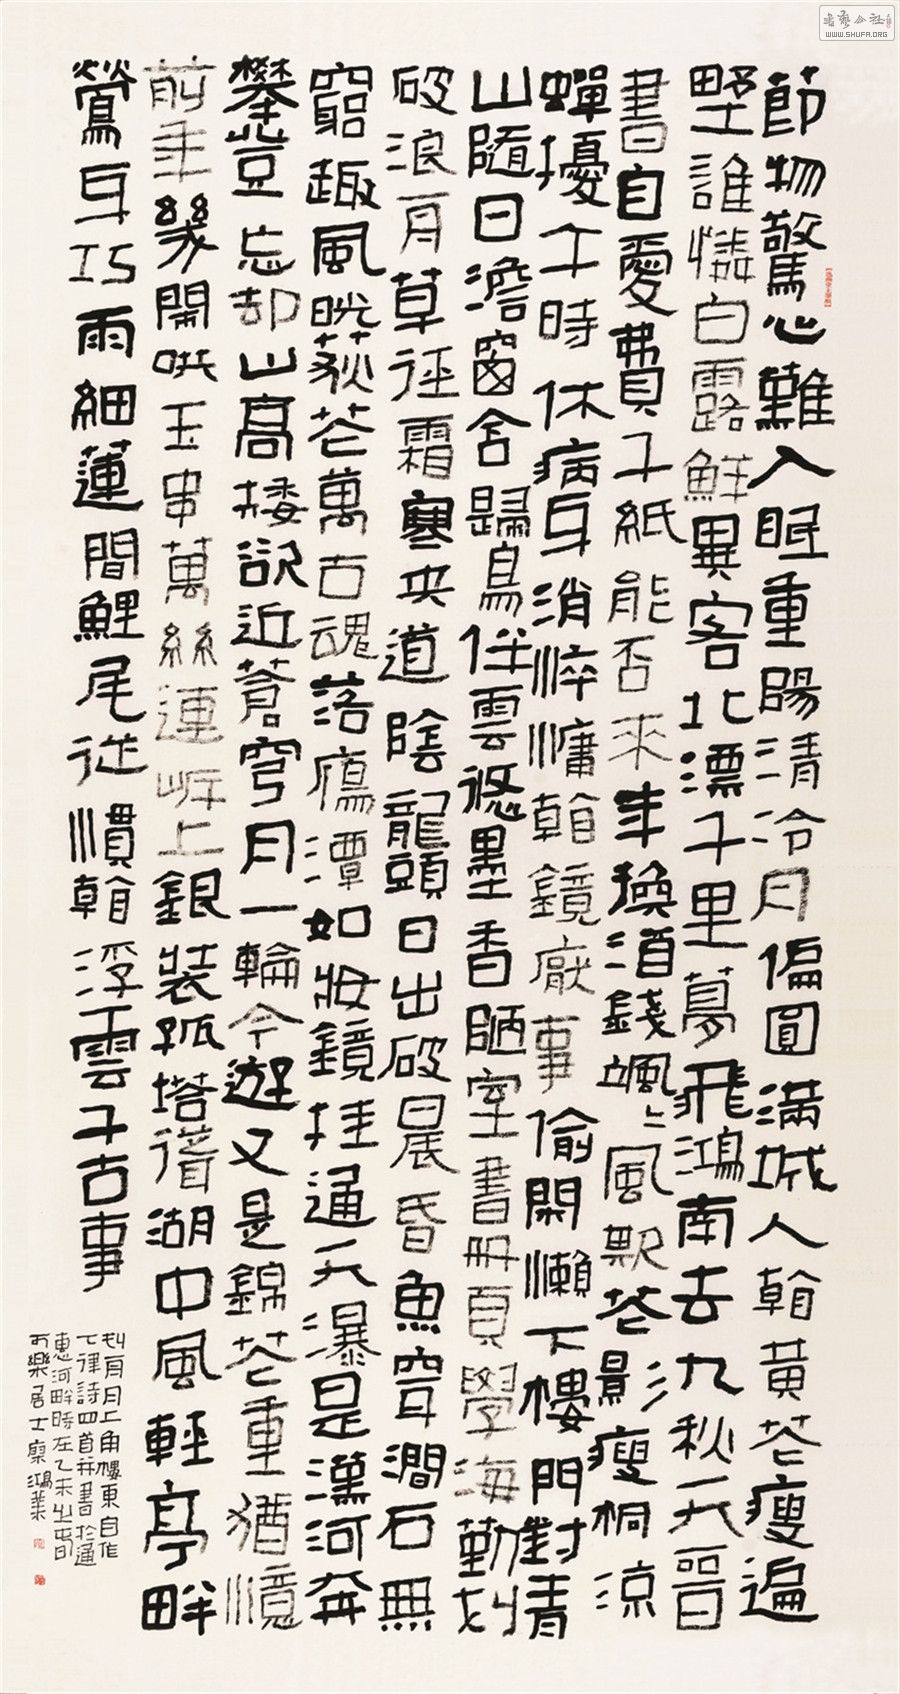 節物驚心難入眠重陽清冷月偏圓滿城人看黃花瘦遍
野誰憐白露鮮異客北漂千里夢飛鴻南去九秋天晉
書自愛費千紙能否來年換酒錢颯〻風欺花影瘦桐涼
蟬擾午時休病身消淬慵看鏡厭事偷閑懶下樓門對青
山隨日澹窗含歸鳥任雲悠墨香陋室書冊頁學海勤划
破浪舟草徑霜寒央道陰龍頭日出破晨昏魚穿澗石無
窮趣風晃荻花萬古魂落雁潭如妝鏡挂通天瀑是漢河奔
攀登忘却山高接欲近蒼穹月一輪今遊又是錦花重猶憶
前年幾開哄玉串萬絲連岸上銀裝孤塔湖中風輕亭畔
鶯身巧雨細蓮間鯉尾從慣看浮雲千古事
舟月上角樓東自作
七律詩四首并書於通
惠河畔時在乙未之春日
可樂居士鴻業
書藝公社
www.SHUFA.ORG